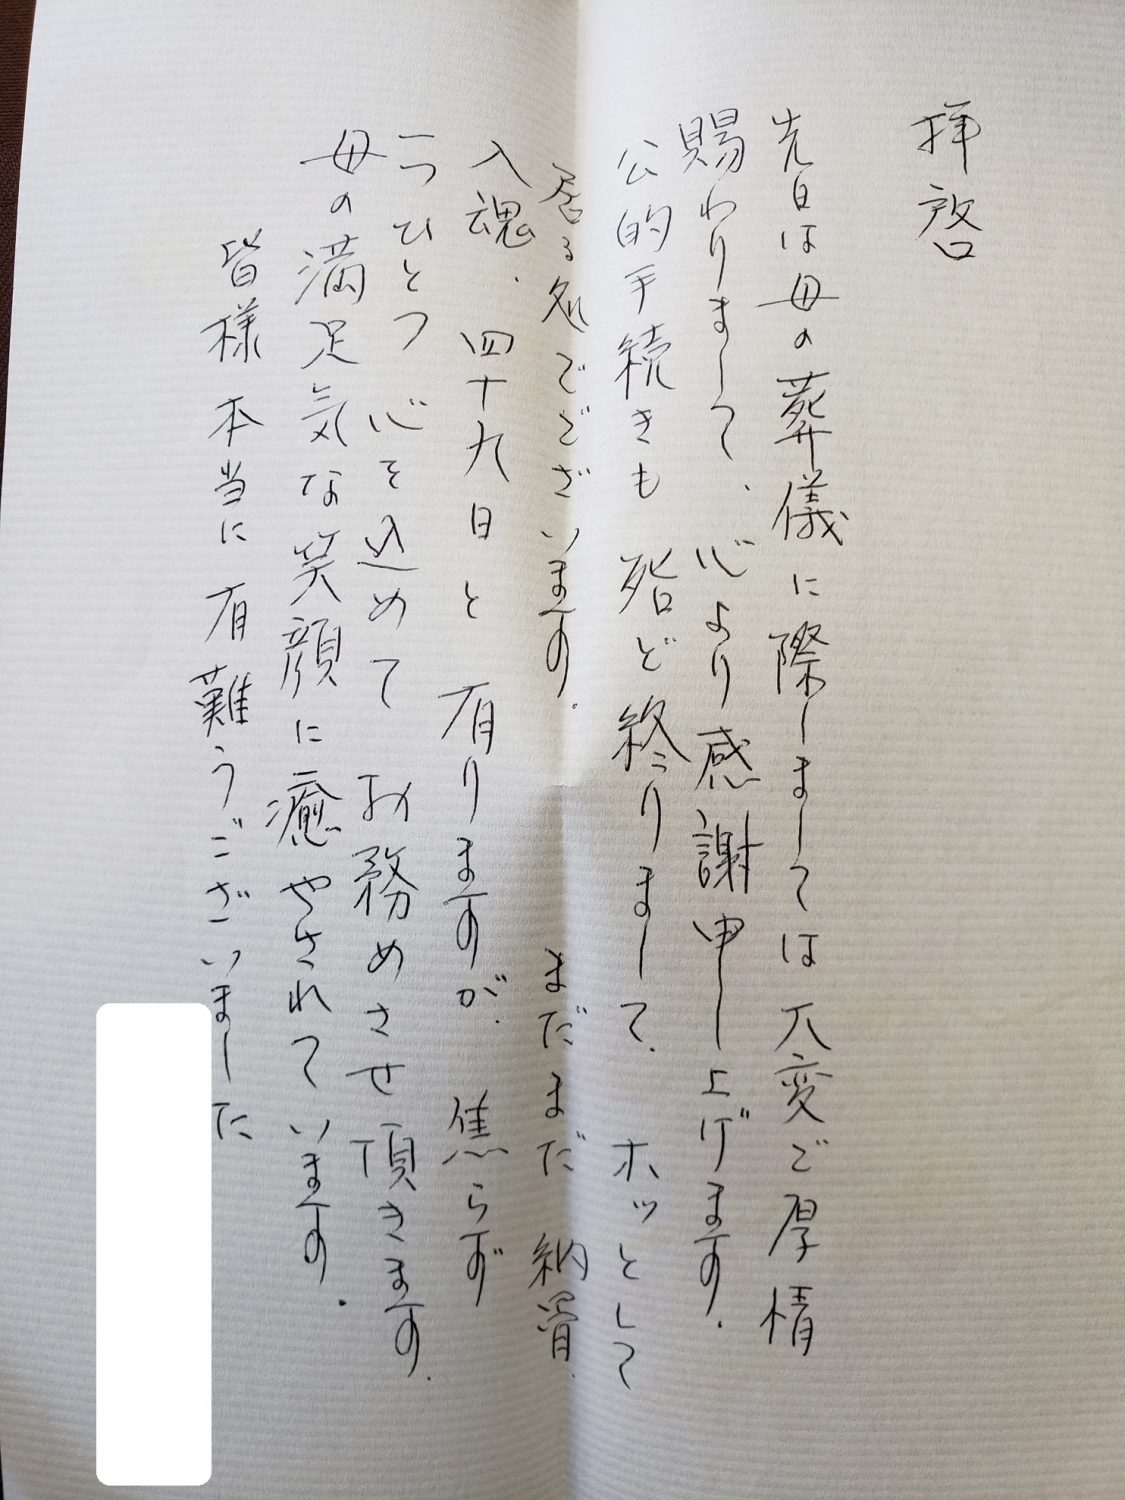 拝啓
先日は母の葬儀に際しましては大変ご厚情
賜わりまして、心より感謝申し上げます。
公的手続きも 殆ど終りまして、ホッとして
居る処でございます。 まだまだ 納骨、
入魂、四十九日と 有りますが、焦らず
一つひとつ 心を込めて お務めさせ頂きます。
母の満足気な笑顔に癒やされています。
皆様 本当に有難うございました